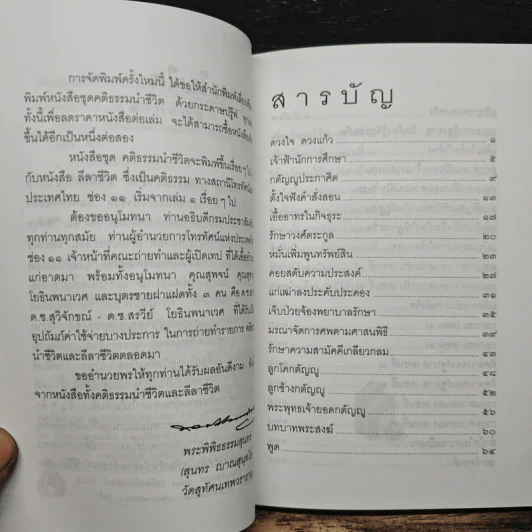 การจัดพิมพ์ครั้งใหม่นี้ ได้ขอให้สำนักพิมพ์
พิมพ์หนังสือชุดคติธรรมนำชีวิต ด้วยกระดาษปรู๊ฟ
ทั้งนี้เพื่อลดราคาหนังสือต่อเล่ม จะได้สามารถซื้อหนังสือ
ขึ้นได้อีกเป็นหนึ่งต่อสอง
หนังสือชุด คติธรรมนำชีวิตจะพิมพ์ขึ้นเรื่อยๆ ไป
กับหนังสือ ลีลาชีวิต ซึ่งเป็นคติธรรม ทางสถานีโทรทัศน์
ประเทศไทย ช่อง ๑๑ เริ่มจากเล่ม ๑ เรื่อยๆ ไป
ต้องขออนุโมทนา ท่านอธิบดีกรมประชาสัมพันธ์
ทุกท่านทุกสมัย ท่านผู้อำนวยการโทรทัศน์แห่งประเทศ
ช่อง ๑๑ เจ้าหน้าที่คณะถ่ายทำและผู้เปิดเทป ที่ได้เอื้อ
แก่อาตมา พร้อมทั้งอนุโมทนา คุณสุพจน์ คุณ
โยธินพนาเวศ และบุตรชายฝาแฝดทั้ง ๓ คน คือ ด.ช.
ด.ช.สุวิจักขณ์ - ด.ช.สรวีย์ โยธินพนาเวศ ที่ได้
อุปถัมภ์ค่าใช้จ่ายบางประการ ในการถ่ายทำรายการ
นำชีวิตและลีลาชีวิตตลอดมา
ขออำนวยพรให้ทุกท่านได้รับผลอันดีงาม
จากหนังสือทั้งคติธรรมนำชีวิตและลีลาชีวิต
พระพิพิธธรรมสุนทร
(สุนทร ญาณสุนฺทโร
วัดสุทัศนเทพวราราม
สารบัญ
ดวงใจ ดวงแก้ว ๑
เจ้าฟ้านักการศึกษา ๕
กตัญญูประกาศิต ๙
ตั้งใจฟังคำสั่งสอน ๑๓
เอื้ออาทรในกิจธุระ ๑๗
รักษาวงศ์ตระกูล ๒๐
หมั่นเพิ่มพูนทรัพย์สิน ๒๓
คอยสดับความประสงค์ ๒๗
แก่เฒ่าลงประคับประคอง ๓๑
เจ็บป่วยจ้องพยาบาลรักษา ๓๕
มรณาจัดการศพตามศาสนพิธี ๓๙
รักษาความสามัคคีเกลียวกลม ๔๓
ลูกโคกตัญญู ๔๘
ลูกช้างกตัญญู ๕๒
พระพุทธเจ้ายอดกตัญญู ๕๖
บทบาทพระสงฆ์ ๖๐
พูด ๖๔